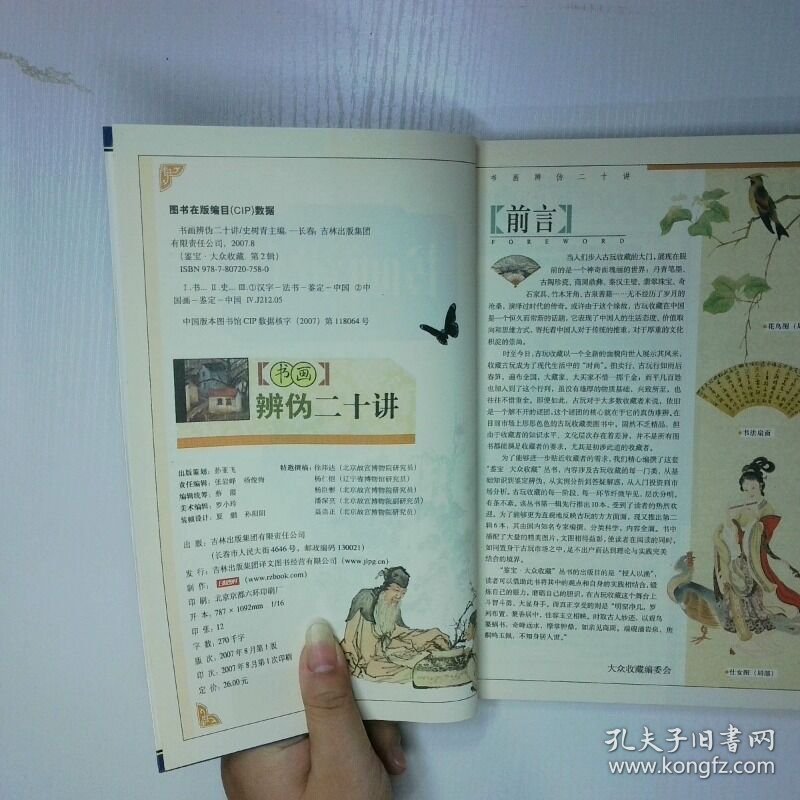 图书在版编目(CIP)数据
书画辨伪二十讲/史树青主编.—长春:吉林出版集团
有限责任公司,2007.8
(鉴宝·大众收藏.第2辑)
ISBN 978-7-80720-758-0
Ⅰ.书… Ⅱ.史… Ⅲ.①汉字-法书-鉴定-中国 ②中
国画-鉴定-中国 Ⅳ.J212.05
中国版本图书馆CIP数据核字(2007)第118064号
【书画】
辨伪二十讲
出版策划:孙亚飞
责任编辑:张岩峰 杨俊梅
编辑统筹:蔡霞
美术编辑:罗小玲
装帧设计:夏鹏 孙阳阳
特邀撰稿:徐邦达(北京故宫博物院研究员)
杨仁恺(辽宁省博物馆研究员)
杨臣彬(北京故宫博物院研究员)
潘深亮(北京故宫博物院副研究员)
聂崇正(北京故宫博物院研究员)
出版:吉林出版集团有限责任公司
(长春市人民大街4646号,邮政编码130021)
发行:吉林出版集团译文图书经营有限公司(www.jlpg.cn)
制作:(www.rzbook.com)
印刷:北京京都六环印刷厂
开本:787×1092mm 1/16
印张:12
字数:270千字
版次:2007年8月第1版
印次:2007年8月第1次印刷
定价:26.00元
书画辨伪二十讲
【前言】
FOREWORD
当人们步入古玩收藏的大门,展现在眼
前的是一个神奇而瑰丽的世界:丹青笔墨、
古陶珍瓷、商周鼎彝、秦汉主璧、翡翠珠宝、奇
石家具、竹木牙角、古泉善籍……无不经历了岁月的
沧桑,演绎过时代的传奇。或许由于这个缘故,古玩收藏在中国
是一个恒久而常新的话题,它表现了中国人的生活态度、价值取
向和思维方式,寄托着中国人对于传统的推重、对于厚重的文化
积淀的崇尚。
时至今日,古玩收藏以一个全新的面貌向世人展示其风采,
收藏古玩成为了现代生活中的“时尚”。拍卖行、古玩行如雨后
春笋,遍布全国,大藏家、大买家不惜一掷千金;而平凡百姓
也加入到了这个行列,虽没有雄厚的物质基础,兴致所至,也
往往不惜重金。即便如此,古玩对于大多数收藏者来说,依旧
是一个解不开的谜团,这个谜团的核心就在于它的真伪难辨。在
目前市场上形形色色的古玩收藏类图书中,固然不乏精品,但
由于收藏者的知识水平、文化层次存在着差异,并不是所有图
书都能满足收藏者的要求,尤其是初涉此道的收藏者。
为了能够进一步贴近收藏者的需求,我们精心编撰了这套
“鉴宝·大众收藏”丛书,内容涉及古玩收藏的每一门类,从基
础知识到鉴定辨伪,从实例分析到答疑解惑,从入门投资到市
场分析。古玩收藏的每一阶段、每一环节纤微毕见,层次分明,
有条不紊。该丛书第一辑先行推出10本,受到了读者的热烈欢
迎。为了能够更为直观地反映古玩的方方面面,现又推出第二
辑6本,其由国内知名专家编撰,分类科学,内容全面。书中
搭配了大量的精美图片,文图相得益彰,使读者在阅读的同时,
如同置身于古玩市场之中,足不出户而达到理论与实践完美
结合的境界。
“鉴宝·大众收藏”丛书的出版目的是“授人以渔”,
读者可以借助此书将其中的观点和自身的实践相结合,锻
炼自己的眼力,磨砺自己的胆识,在古玩收藏这个舞台上
斗智斗勇、大显身手。而真正享受的则是“明窗净几,罗
列布置,篆香居中,佳客玉立相映。时取古人妙迹,以观鸟
篆蜗书,奇峰远水,摩挲钟鼎,如亲见商周。端砚涌岩泉,焦
桐鸣玉佩,不知身居人世。”
大众收藏编委会
花鸟图(局
书法扇面
仕女图(局部)
孔夫子旧书网
www.kongfz.com